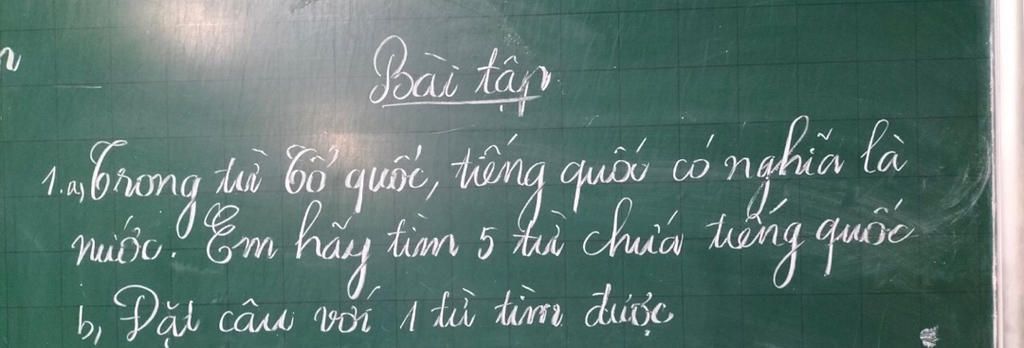 Bài tập
1. a, Trong từ Tổ quốc, tiếng quốc có nghĩa là
nước. Em hãy tìm 5 từ chứa tiếng quốc
b, Đặt câu với 1 từ tìm được